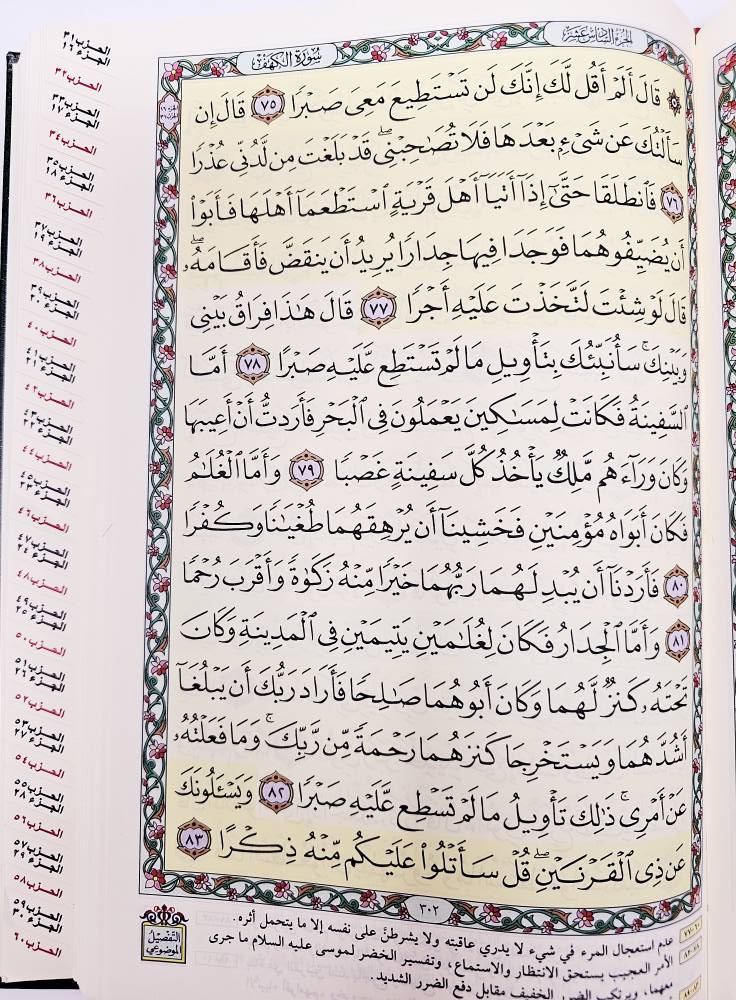 سُورَةُ الكَهْفِ
الجُزءُ السَّادِسَ عَشَرَ
۞ قَالَ أَلَمْ أَقُل لَّكَ إِنَّكَ لَن تَسْتَطِيعَ مَعِىَ صَبْرًا ٧٥ قَالَ إِن
سَأَلْتُكَ عَن شَىْءٍۭ بَعْدَهَا فَلَا تُصَٰحِبْنِىۖ قَدْ بَلَغْتَ مِن لَّدُنِّى عُذْرًا
٧٦ فَٱنطَلَقَا حَتَّىٰٓ إِذَآ أَتَيَآ أَهْلَ قَرْيَةٍ ٱسْتَطْعَمَآ أَهْلَهَا فَأَبَوْا۟
أَن يُضَيِّفُوهُمَا فَوَجَدَا فِيهَا جِدَارًا يُرِيدُ أَن يَنقَضَّ فَأَقَامَهُۥۖ
قَالَ لَوْ شِئْتَ لَتَّخَذْتَ عَلَيْهِ أَجْرًا ٧٧ قَالَ هَٰذَا فِرَاقُ بَيْنِى
وَبَيْنِكَۚ سَأُنَبِّئُكَ بِتَأْوِيلِ مَا لَمْ تَسْتَطِع عَّلَيْهِ صَبْرًا ٧٨ أَمَّا
ٱلسَّفِينَةُ فَكَانَتْ لِمَسَٰكِينَ يَعْمَلُونَ فِى ٱلْبَحْرِ فَأَرَدتُّ أَنْ أَعِيبَهَا
وَكَانَ وَرَآءَهُم مَّلِكٌ يَأْخُذُ كُلَّ سَفِينَةٍ غَصْبًا ٧٩ وَأَمَّا ٱلْغُلَٰمُ
فَكَانَ أَبَوَاهُ مُؤْمِنَيْنِ فَخَشِينَآ أَن يُرْهِقَهُمَا طُغْيَٰنًا وَكُفْرًا
٨٠ فَأَرَدْنَآ أَن يُبْدِلَهُمَا رَبُّهُمَا خَيْرًا مِّنْهُ زَكَوٰةً وَأَقْرَبَ رُحْمًا
٨١ وَأَمَّا ٱلْجِدَارُ فَكَانَ لِغُلَٰمَيْنِ يَتِيمَيْنِ فِى ٱلْمَدِينَةِ وَكَانَ
تَحْتَهُۥ كَنزٌ لَّهُمَا وَكَانَ أَبُوهُمَا صَٰلِحًا فَأَرَادَ رَبُّكَ أَن يَبْلُغَآ
أَشُدَّهُمَا وَيَسْتَخْرِجَا كَنزَهُمَا رَحْمَةً مِّن رَّبِّكَۚ وَمَا فَعَلْتُهُۥ
عَنْ أَمْرِىۚ ذَٰلِكَ تَأْوِيلُ مَا لَمْ تَسْطِع عَّلَيْهِ صَبْرًا ٨٢ وَيَسْـَٔلُونَكَ
عَن ذِى ٱلْقَرْنَيْنِۖ قُلْ سَأَتْلُوا۟ عَلَيْكُم مِّنْهُ ذِكْرًا ٨٣
٣٠٢
التَّفصيل
الموضوعي
عدم استعجال المرء في شيء لا يدري عاقبته ولا يشرطنَّ على نفسه إلا ما يتحمل أثره.
الأمر العجيب يستحق الانتظار والاستماع، وتفسير الخضر لموسى عليه السلام ما جرى
معهما، ويرتكب الضرر الخفيف مقابل دفع الضرر الشديد.
الحزب ٣١
الجزء ١٦
الحزب ٣٢
الحزب ٣٣
الجزء ١٧
الحزب ٣٤
الحزب ٣٥
الجزء ١٨
الحزب ٣٦
الحزب ٣٧
الجزء ١٩
الحزب ٣٨
الحزب ٣٩
الجزء ٢٠
الحزب ٤٠
الحزب ٤١
الجزء ٢١
الحزب ٤٢
الحزب ٤٣
الجزء ٢٢
الحزب ٤٤
الحزب ٤٥
الجزء ٢٣
الحزب ٤٦
الحزب ٤٧
الجزء ٢٤
الحزب ٤٨
الحزب ٤٩
الجزء ٢٥
الحزب ٥٠
الحزب ٥١
الجزء ٢٦
الحزب ٥٢
الحزب ٥٣
الجزء ٢٧
الحزب ٥٤
الحزب ٥٥
الجزء ٢٨
الحزب ٥٦
الحزب ٥٧
الجزء ٢٩
الحزب ٥٨
الحزب ٥٩
الجزء ٣٠
الحزب ٦٠